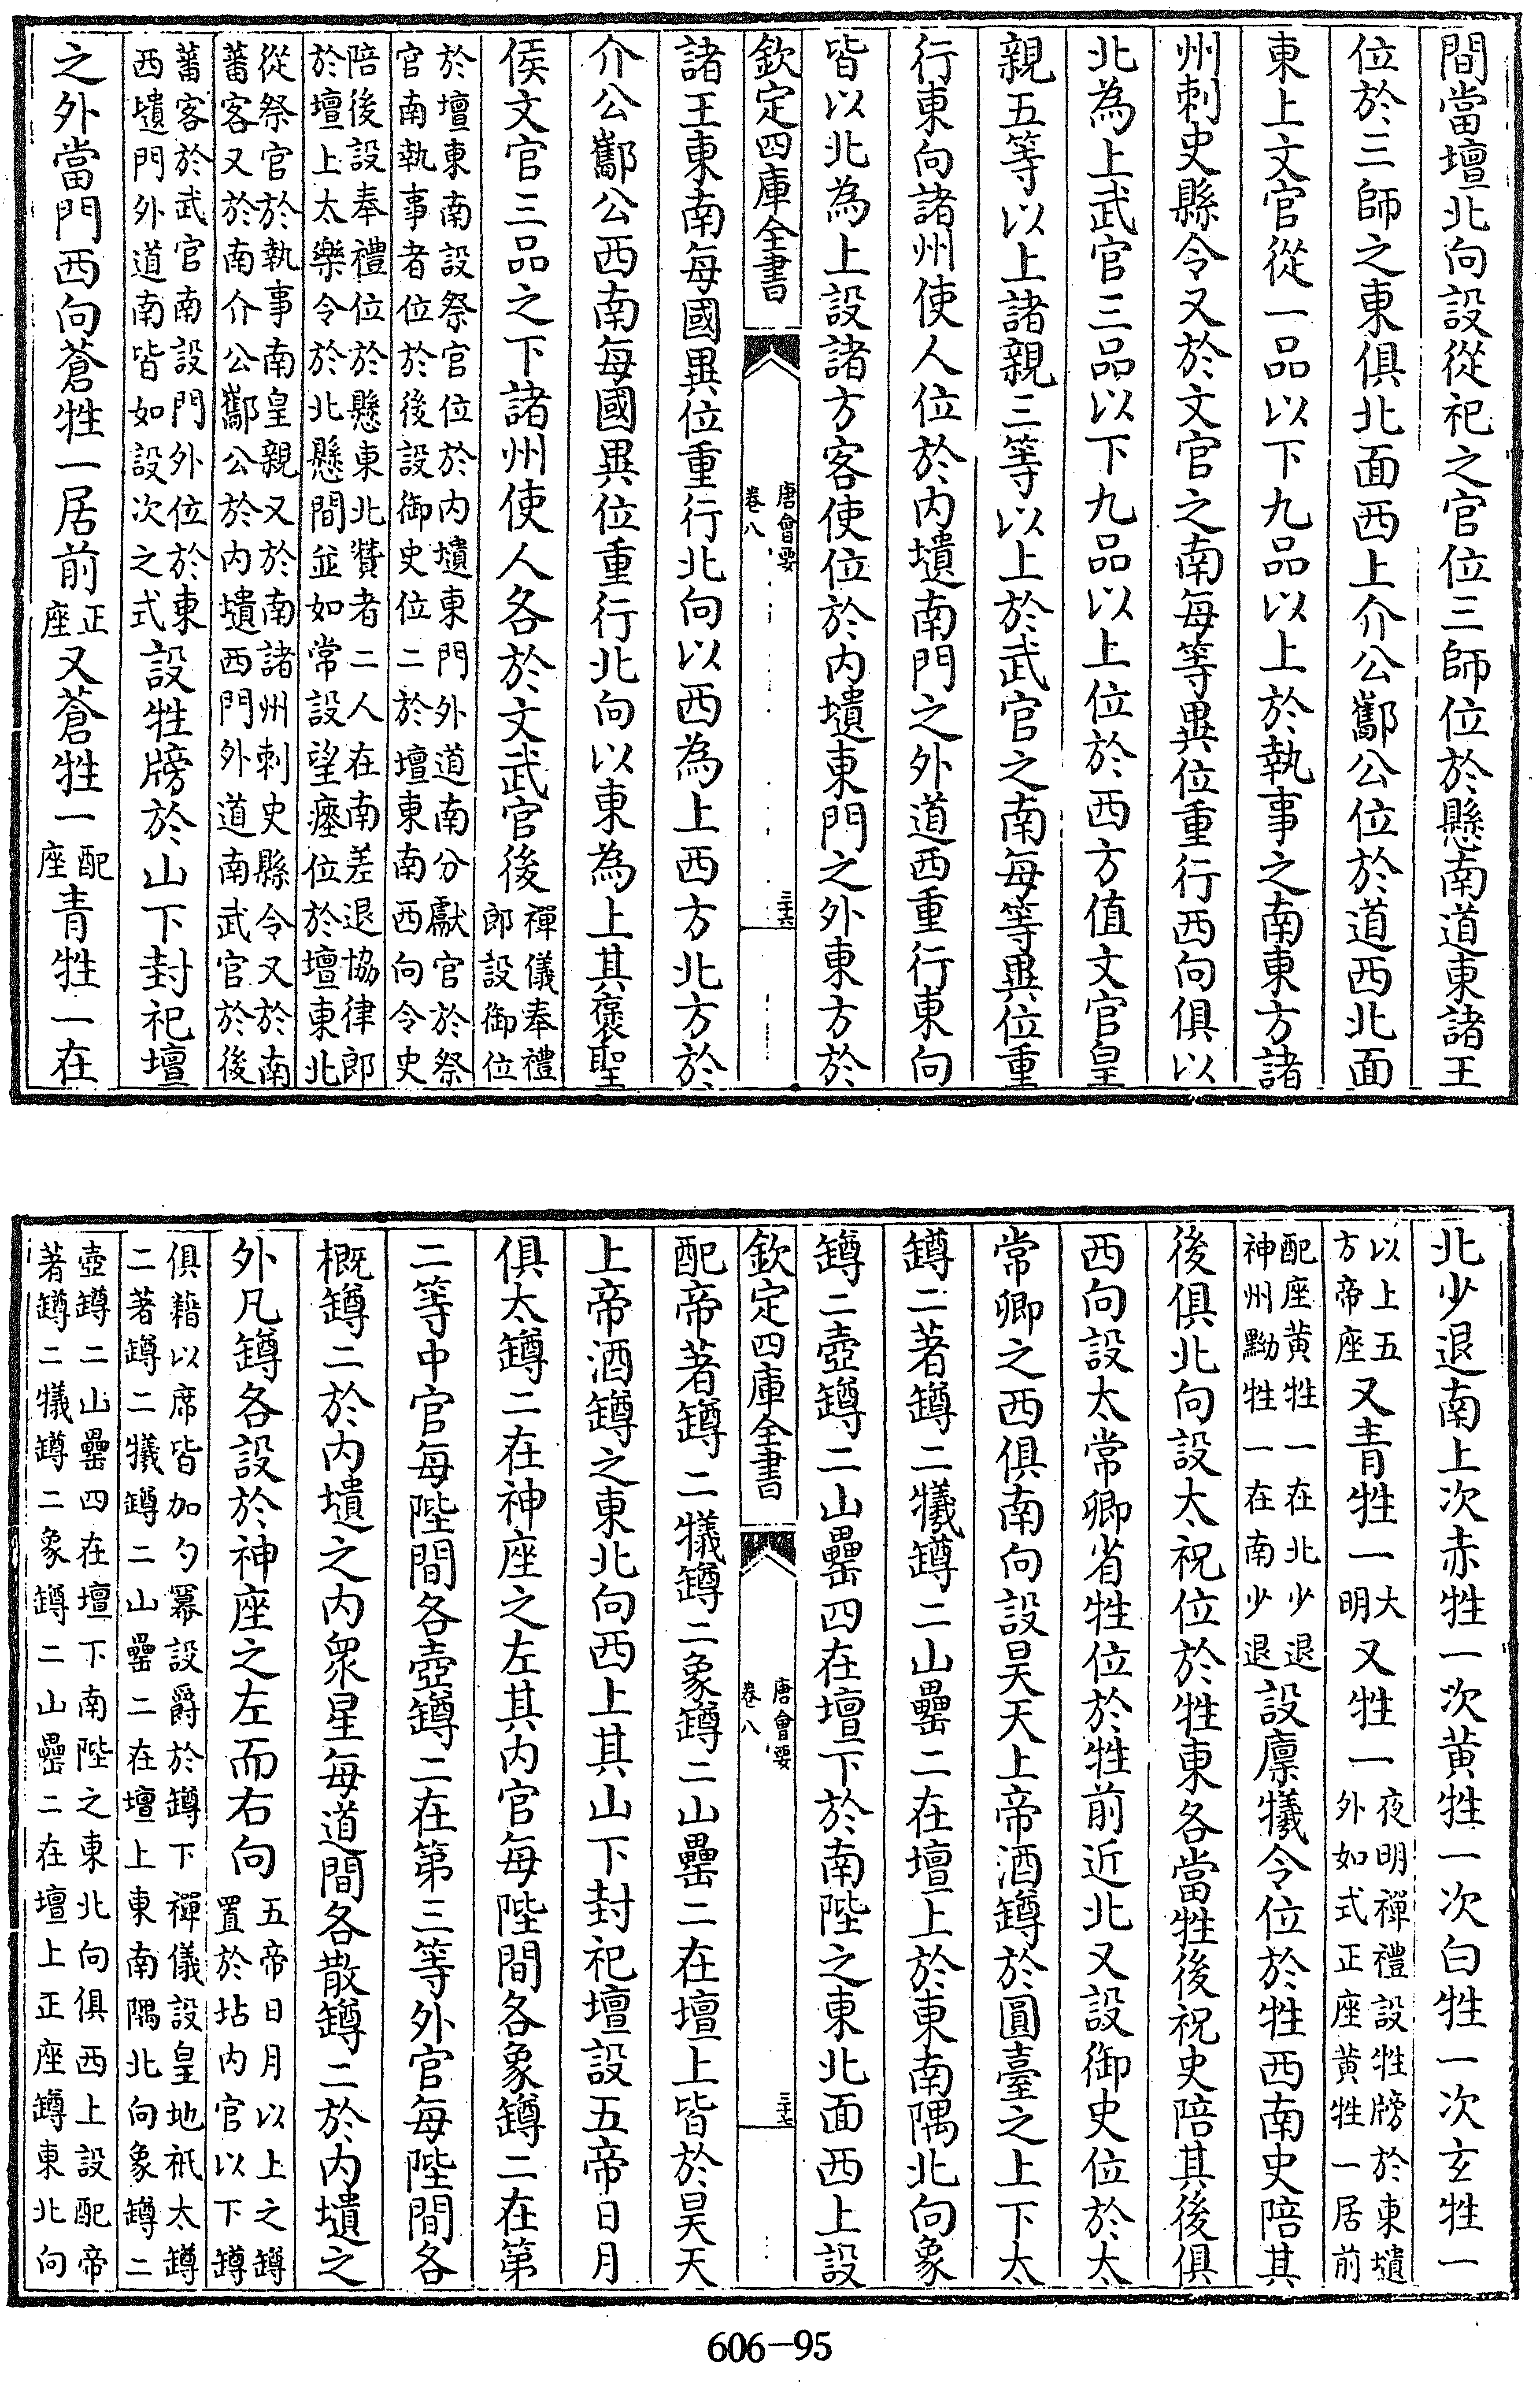 間當壇北向設從祀之官位三師位於懸南道東諸王
位於三師之東俱北面西上介公酅公位於道西北面
東上文官從一品以下九品以上於執事之南東方諸
州刺史縣令又於文官之南每等異位重行西向俱以
北為上武官三品以下九品以上位於西方值文官皇
親五等以上諸親三等以上於武官之南每等異位重
行東向諸州使人位於内壝南門之外道西重行東向
皆以北為上設諸方客使位於内壝東門之外東方於
欽定四庫全書
唐會要
卷八
三十六
諸王東南每國異位重行北向以西為上西方北方於
介公酅公西南每國異位重行北向以東為上其褒聖
侯文官三品之下諸州使人各於文武官後禪儀奉禮
郎設御位
於壇東南設祭官位於内壝東門外道南分獻官於祭
官南執事者位於後設御史位二於壇東南西向令史
陪後設奉禮位於懸東北贊者二人在南差退協律郎
於壇上太樂令於北懸間並如常設望瘞位於壇東北
從祭官於執事南皇親又於南諸州刺史縣令又於南
蕃客又於南介公酅公於内壝西門外道南武官於後
蕃客於武官南設門外位於東
西壝門外道南皆如設次之式設牲牓於山下封祀壇
之外當門西向蒼牲一居前正
座又蒼牲一配
座青牲一在
北少退南上次赤牲一次黄牲一次白牲一次玄牲一
以上五
方帝座又青牲一大
明又牲一夜明禪禮設牲牓於東壝
外如式正座黄牲一居前
配座黄牲一在北少退
神州黝牲一在南少退設廪犧令位於牲西南史陪其
後俱北向設太祝位於牲東各當牲後祝史陪其後俱
西向設太常卿省牲位於牲前近北又設御史位於太
常卿之西俱南向設昊天上帝酒罇於圓臺之上下太
罇二著罇二犧罇二山罍二在壇上於東南隅北向象
罇二壺罇二山罍四在壇下於南陛之東北面西上設
欽定四庫全書
唐會要
卷八
三十七
配帝著罇二犧罇二象罇二山罍二在壇上皆於昊天
上帝酒罇之東北向西上其山下封祀壇設五帝日月
俱太罇二在神座之左其内官每陛間各象罇二在第
二等中官每陛間各壺罇二在第三等外官每陛間各
概罇二於内壝之内衆星每道間各散罇二於内壝之
外凡罇各設於神座之左而右向五帝日月以上之罇
置於坫内官以下罇
俱藉以席皆加勺冪設爵於罇下禪儀設皇地祇太罇
二著罇二犧罇二山罍二在壇上東南隅北向象罇二
壺罇二山罍四在壇下南陛之東北向俱西上設配帝
著罇二犧罇二象罇二山罍二在壇上正座罇東北向
606-95